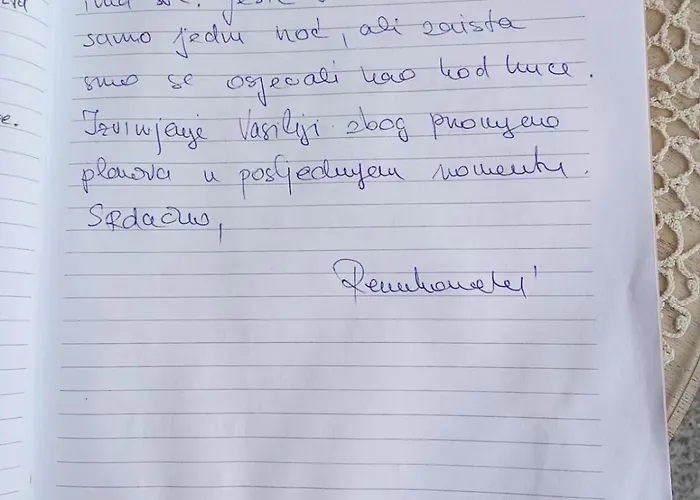 samo jednu noć, ali zaista
smo se osjećali kao kod kuće.
Izvinjenje Vasiliji zbog promjene
planova u posljednjem momentu.
Srdačno,